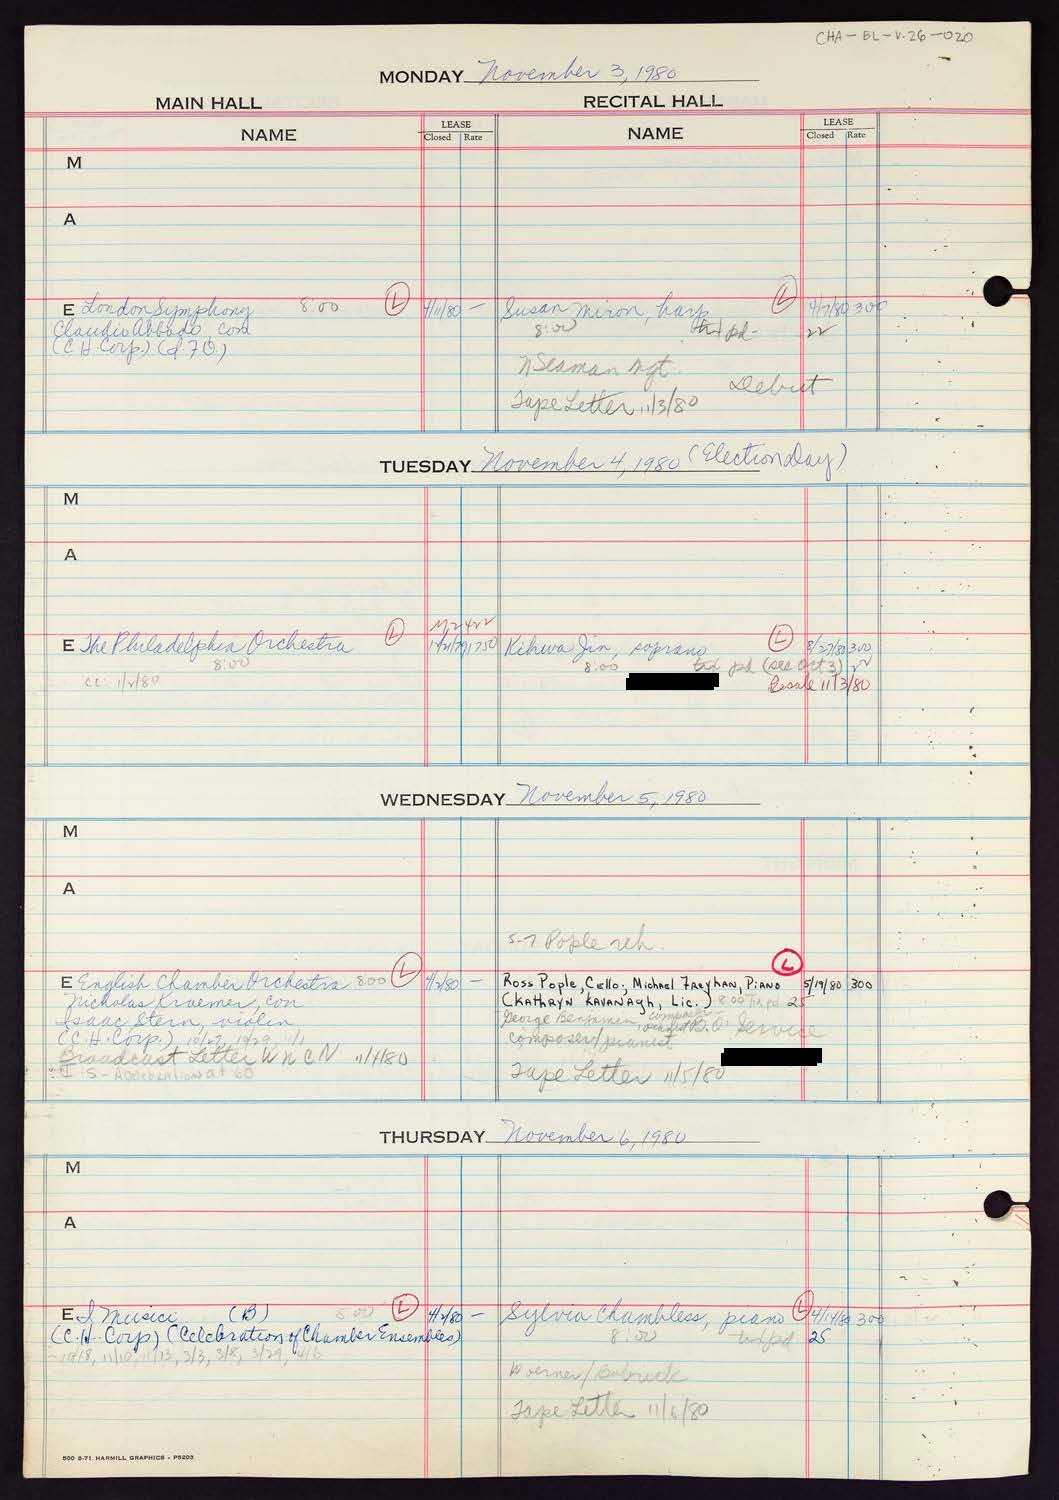 CHA-BL-V.26-020
MONDAY November 3, 1980
MAIN HALL RECITAL HALL
NAME LEASE Closed Rate NAME LEASE Closed Rate
M
A
E London Symphony 8:00 L 4/11/80 — Susan Miron, harp L 4/7/80 300
Claudio Abbado, con 8:00 pd- 22
(C.H. Corp.)
N Seaman Mgt.
Debut
Tape Letter 11/3/80
TUESDAY November 4, 1980 (Election Day)
M
A
E The Philadelphia Orchestra L 1750 Kihwa Jin, soprano L 8/27/80 300
8:00 8:00 pd (see Oct 3) 22
cc: 1/2/80 11/3/80
WEDNESDAY November 5, 1980
M
A
5-7 Pople reh.
E English Chamber Orchestra 8:00 L 4/2/80 — Ross Pople, Cello; Michael Freyhan, Piano L 5/19/80 300
Nicholas Kraemer, con (Kathryn Kavanagh, Lic.) 8:00 pd 25
Isaac Stern, violin George Benjamin, composer
(C.H. Corp.) 10/27, 10/29, 11/1 composer/pianist B.O. Service
Broadcast Letter WNCN 11/4/80
Tape Letter 11/5/80
THURSDAY November 6, 1980
M
A
E I Musici (B) 8:00 L 4/2/80 — Sylvia Chambless, piano L 4/14/80 300
(C.H. Corp) (Celebration of Chamber Ensembles) 8:00 pd 25
10/18, 11/10, 11/13, 3/3, 3/8, 3/29, 4/6
Tape Letter 11/6/80
500 8-71 HARMILL GRAPHICS - P5203